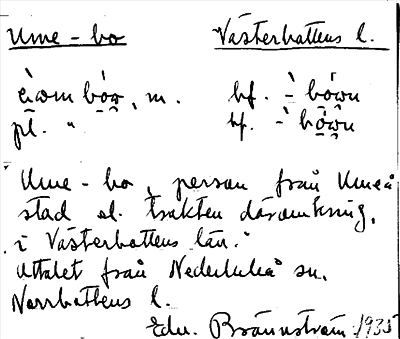 Ume-bo Västerbottens l.
m. bf.
pl. " bf.
Ume-bo, person från Umeå
stad el. trakten däromkring,
i Västerbottens län."
Uttalet från Nederluleå sn.
Norrbottens l.
Edv. Brännström 1935